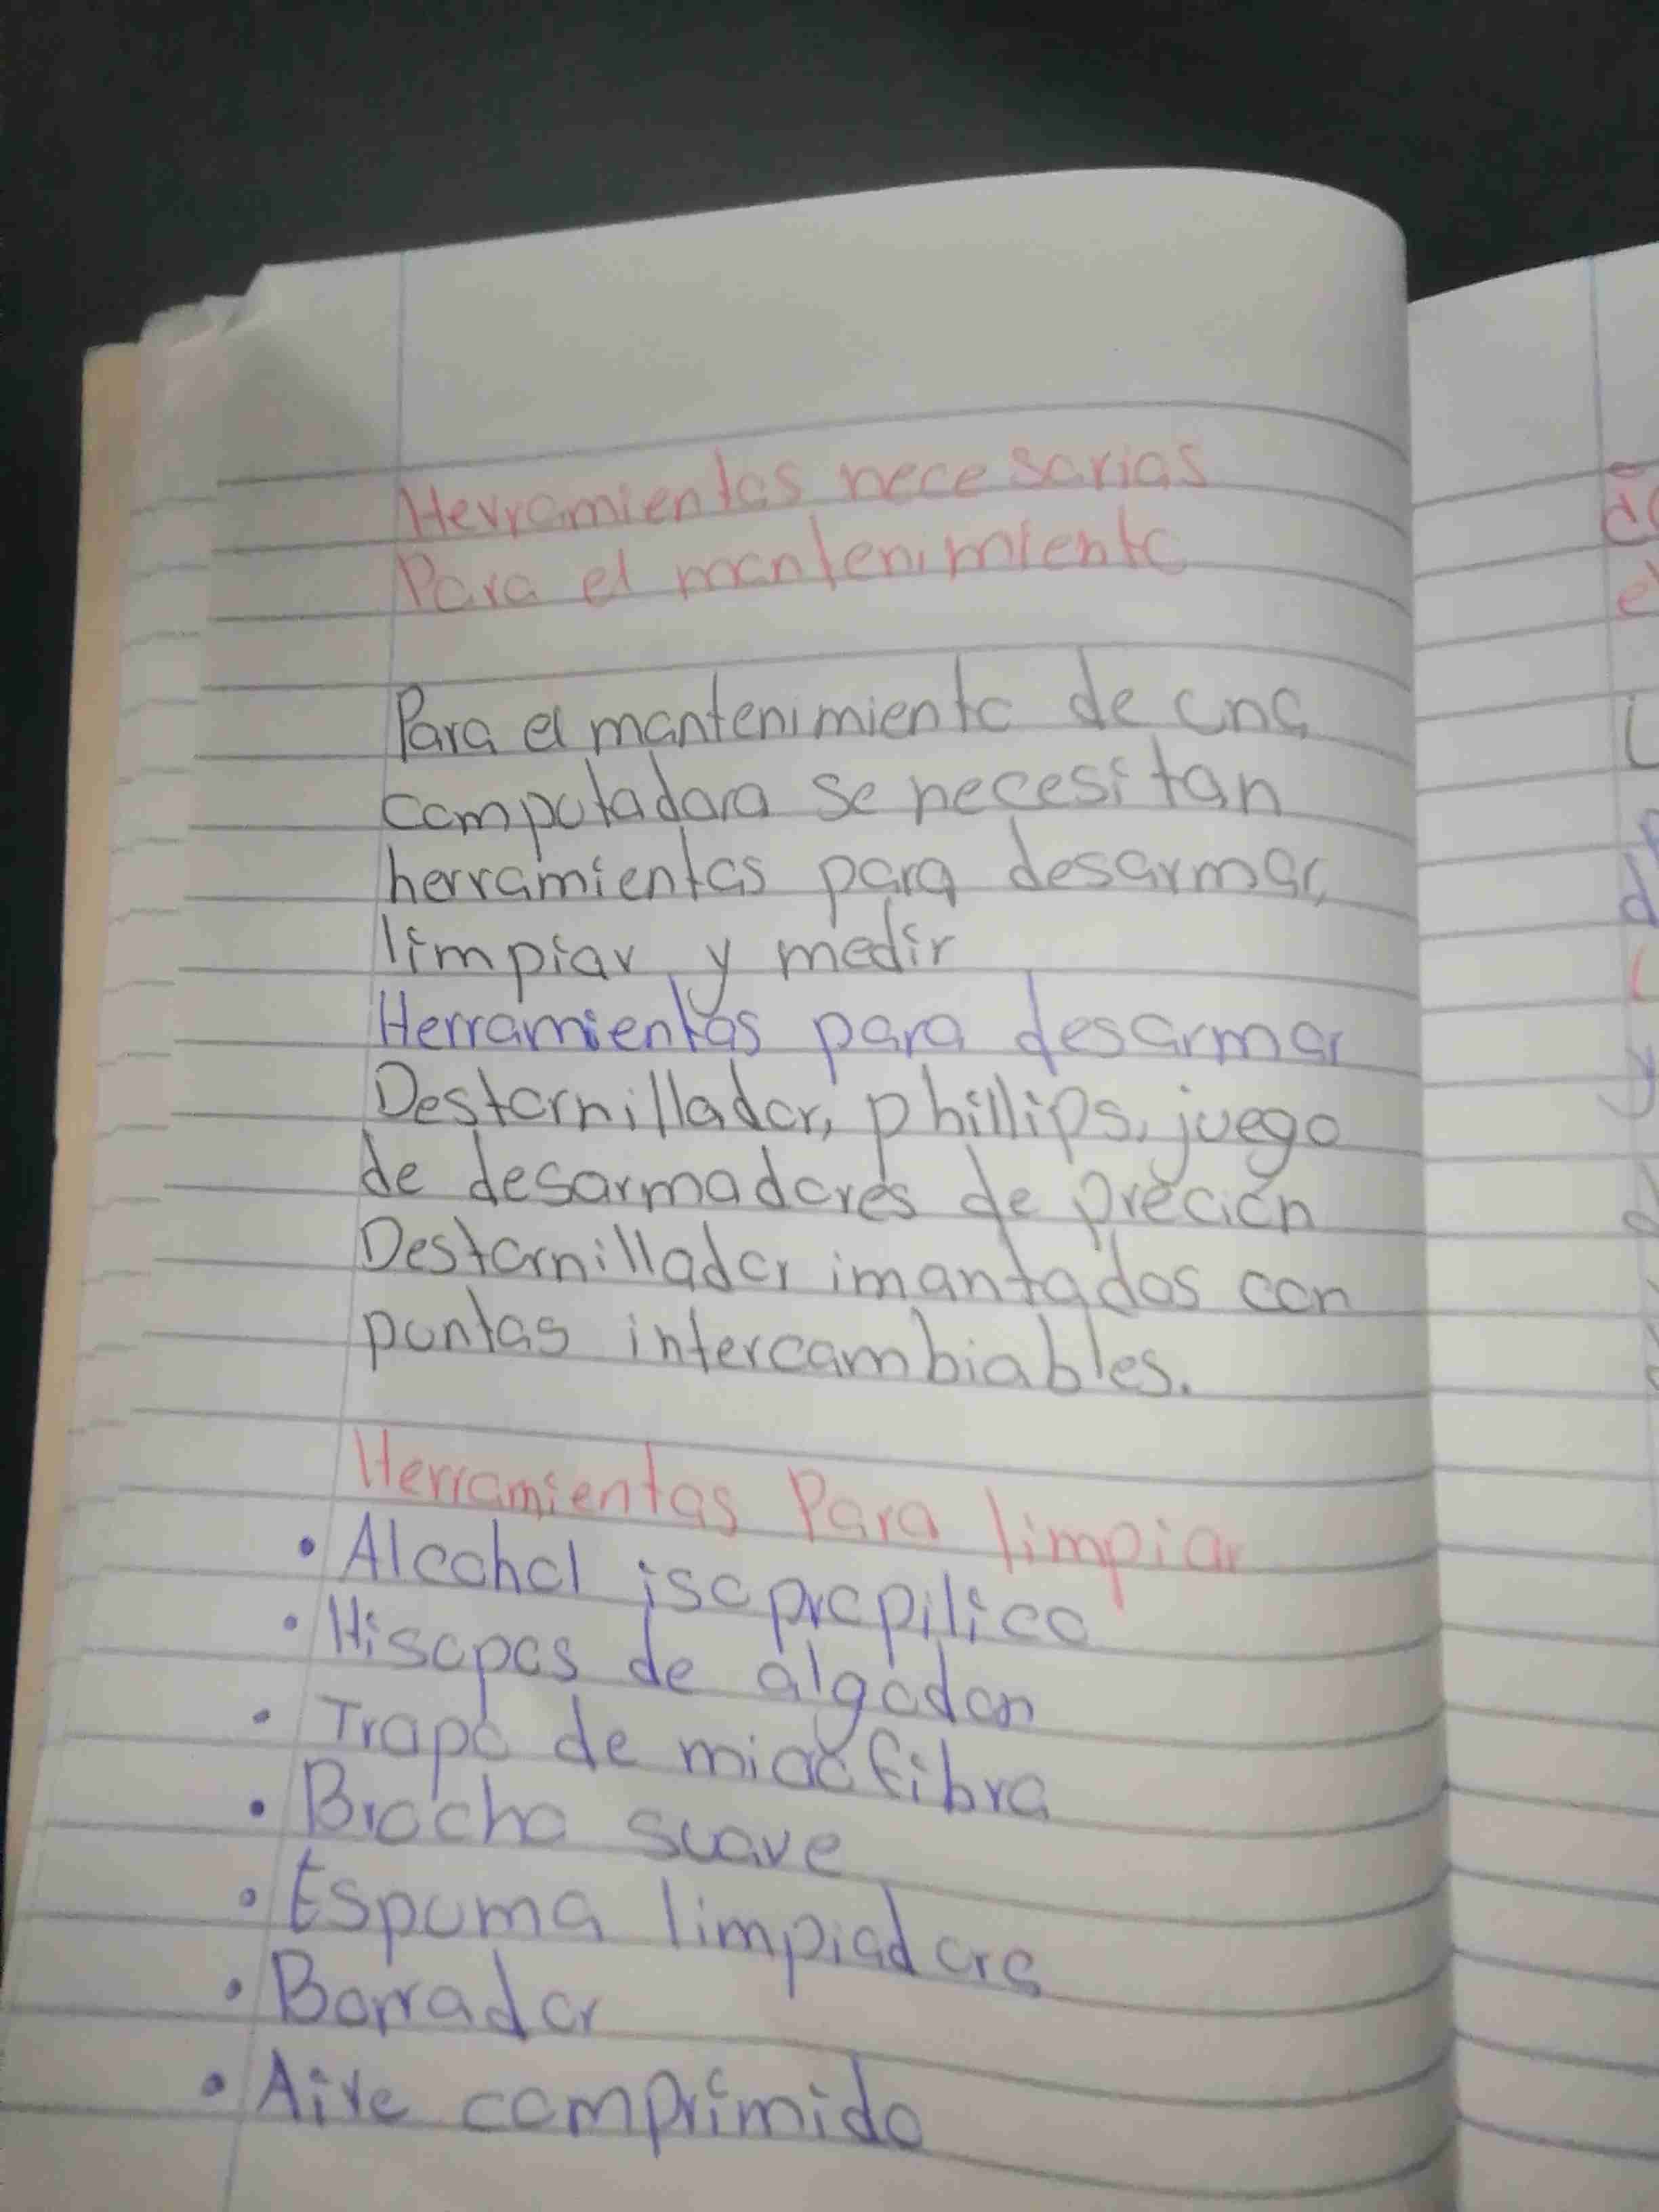 Herramientas necesarias
Para el mantenimiento
Para el mantenimiento de una
computadora se necesitan
herramientas para desarmar,
limpiar y medir
Herramientas para desarmar
Destornillador, phillips, juego
de desarmadores de preción
Destornillador imantados con
puntas intercambiables.
Herramientas Para limpiar
• Alcohol isopropilico
• Hisopos de algodon
• Trapo de microfibra
• Brocha suave
• Espuma limpiadora
• Borrador
• Aire comprimido